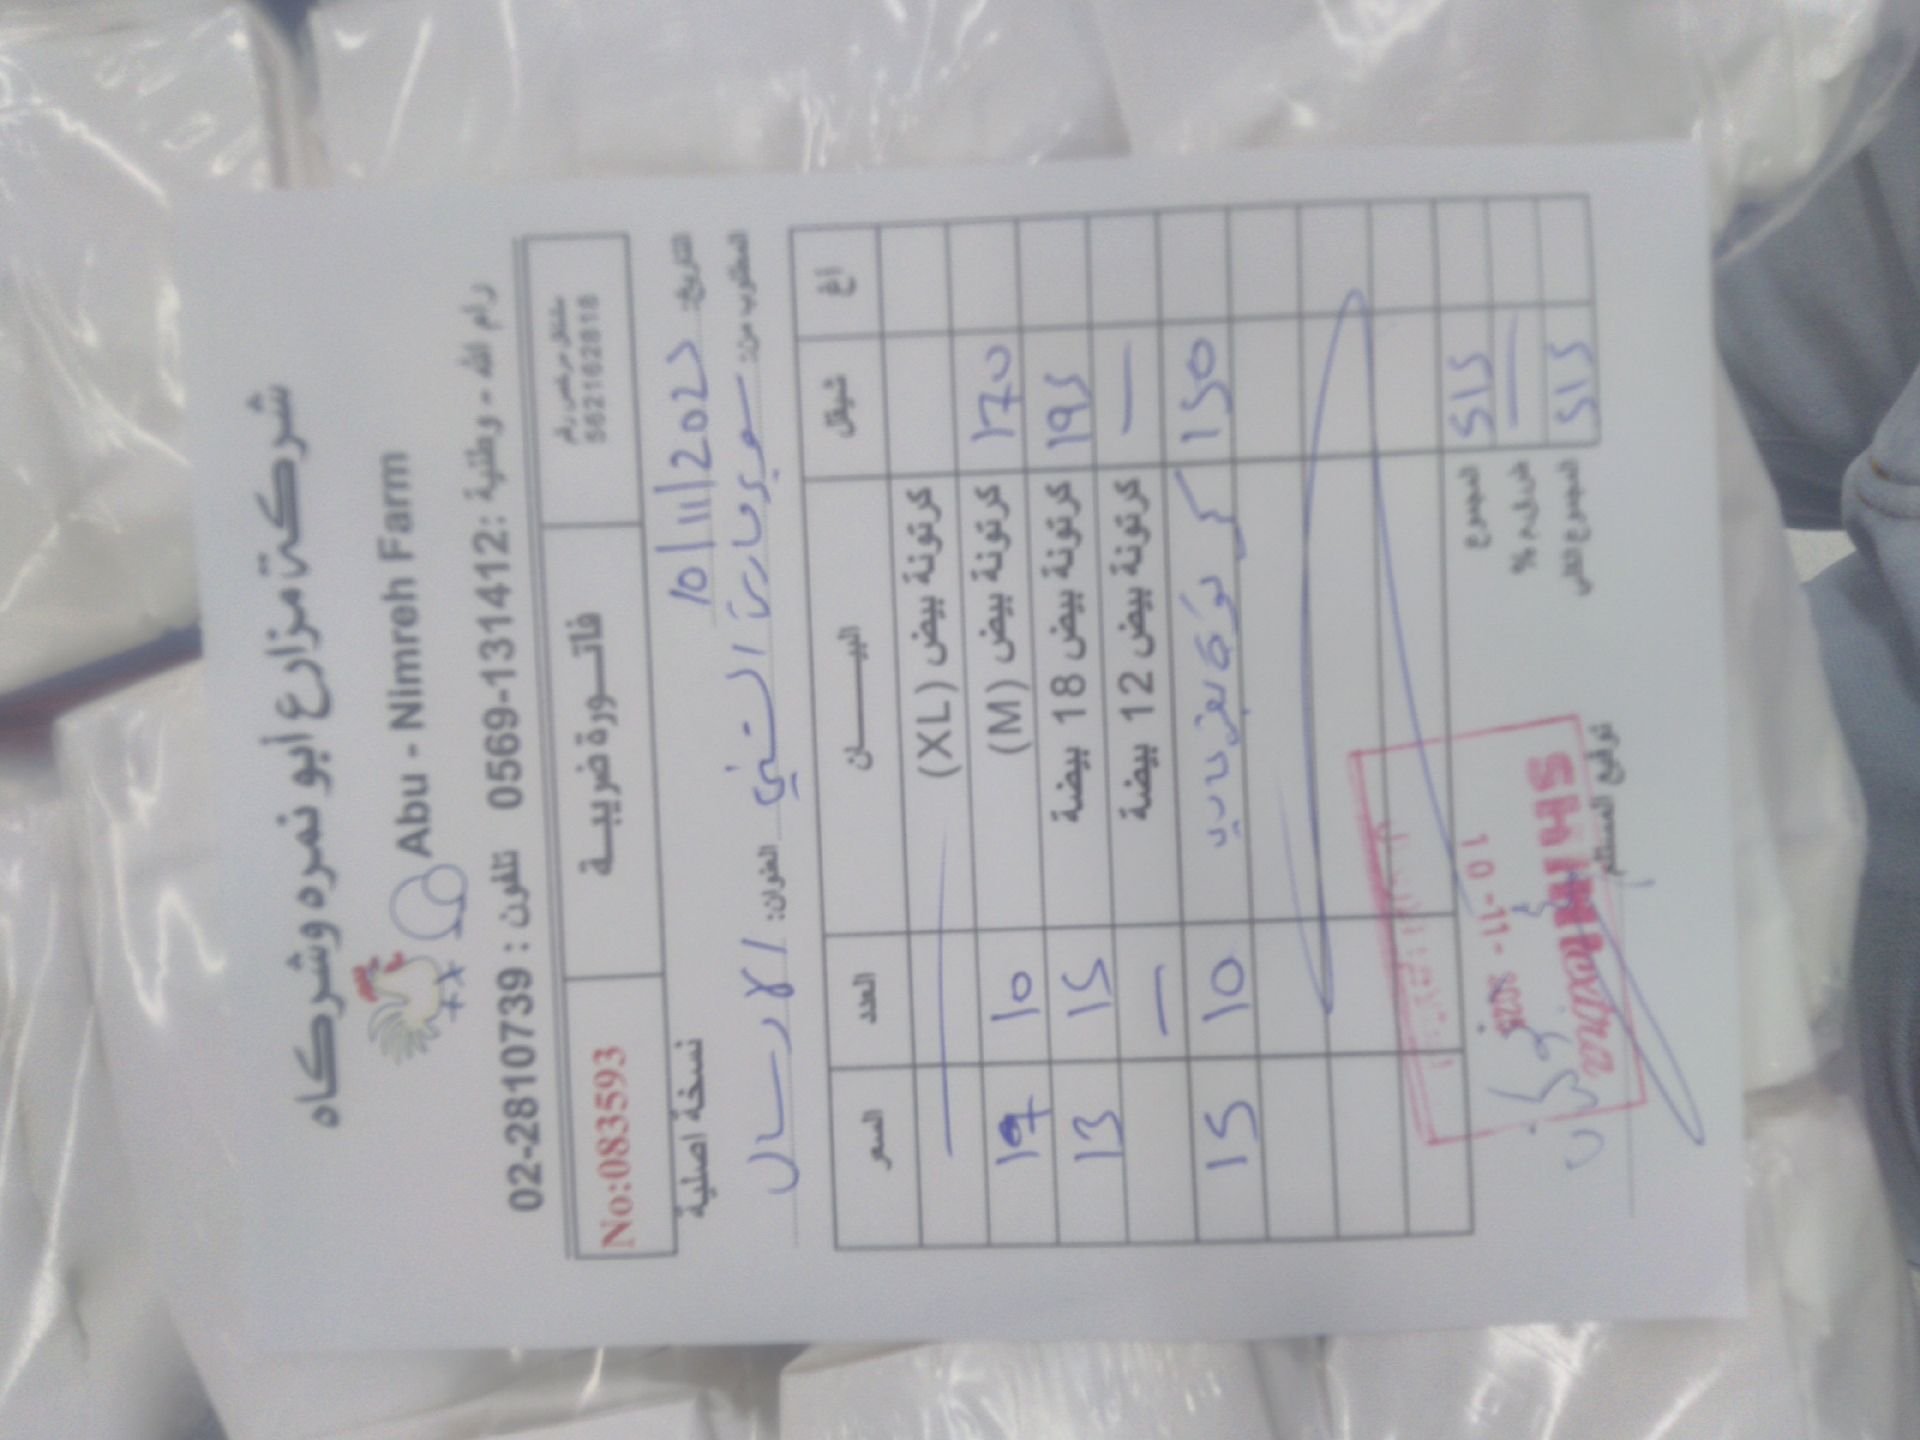 شركة مزارع أبو نمره وشركاه
Abu - Nimreh Farm
رام الله - وطنية: 0569-131412 تلفون : 02-2810739
مشتغل مرخص رقم
562162818
فاتـورة ضريبـة
No:083593
التاريخ: 10/11/202
نسخة اصلية
المطلوب من: سوبر ماركت الشني العنوان: الارسال
اغ شيقل البيـــــان العدد السعر
كرتونة بيض (XL)
170 كرتونة بيض (M) 10 17
195 كرتونة بيض 18 بيضة 15 13
— كرتونة بيض 12 بيضة —
150 10 15
المجموع 515
ض.ق.م % —
المجموع الكلي 515
توقيع المستلم
10-11-2025
SHINI Extra